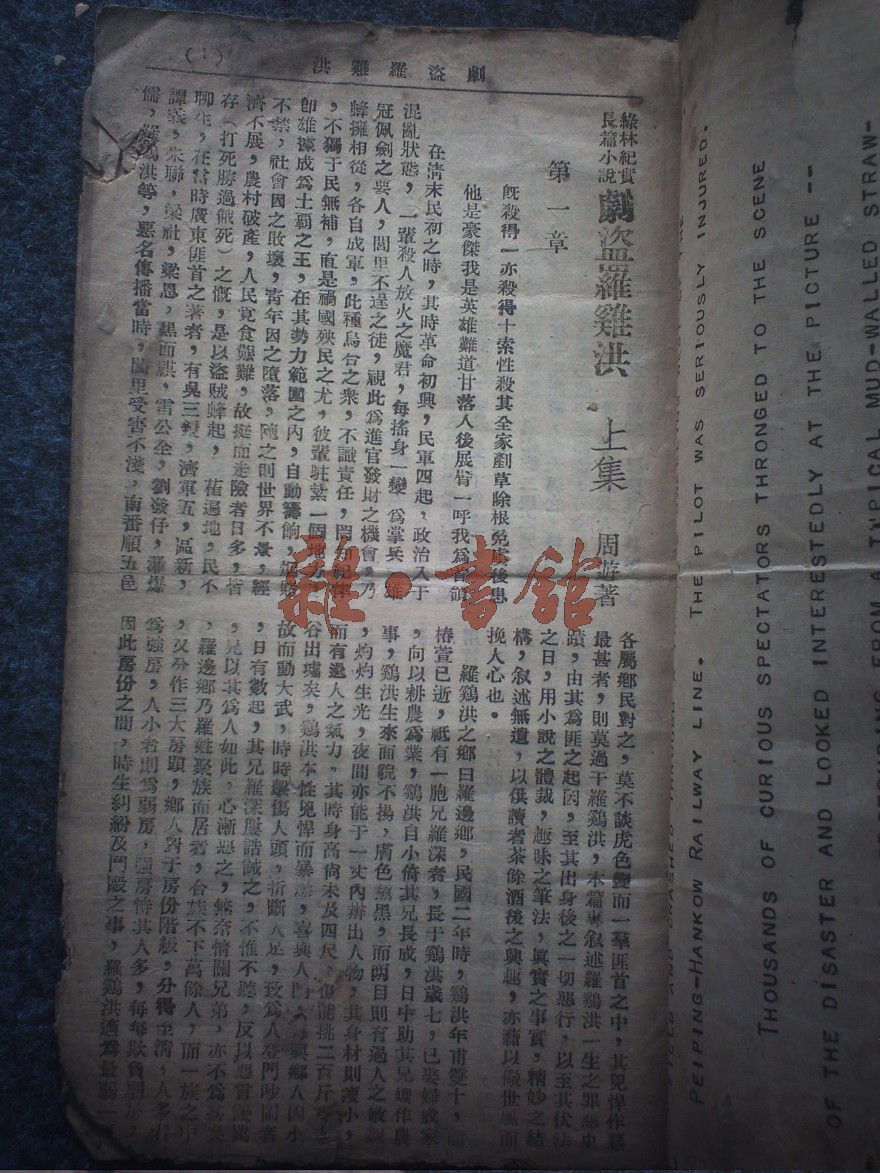 劇盜羅雞洪
(1)
綠林紀實
長篇小說
劇盜羅雞洪 上集 周遊著
第一章
既殺得一亦殺得十索性殺其全家剷草除根免虞後患
他是豪傑我是英雄難道甘落人後展臂一呼我為首領
在清末民初之時,其時革命初興,民軍四起,政治入于
混亂狀態,一輩殺人放火之魔君,每搖身一變 為掌兵
冠佩劍之要人,閭里不逞之徒,視此為進官發財之機會,乃
蜂擁相從,各自成軍,此種烏合之衆,不識責任,罔知紀律
,不獨于民無補,直是禍國殃民之尤,彼輩駐紮一個地方
卽雄據成為土霸之王,在其勢力範圍之內,自動籌餉,
不禁,社會因之敗壞,青年因之墮落,隨之則世界不景,經
濟不展,農村破產,人民覓食艱難,故挺而走險者日多,皆
存(打死勝過餓死)之慨,是以盜賊蜂起,萑遍地,民不
聊生,在當時廣東匪首之著者,有吳三鏡,濟軍五,區新,
譚義,朱聯,梁社,梁恩,雷公全,劉發仔,羅煤
儒,羅鷄洪等,惡名傳播當時,閭里受害不淺,南番順五邑
各屬鄉民對之,莫不談虎色變而一羣匪首之中,其兇悍作惡
最甚者,則莫過于羅鷄洪,本篇專敘述羅鷄洪一生之罪惡史
蹟,由其為匪之起因,至其出身後之一切惡行,以至其伏法
之日,用小說之體裁,趣味之筆法,眞實之事實,精妙之結
構,敘述無遺,以供讀者茶餘酒後之興趣,亦藉以儆世風而
挽人心也.
羅鷄洪之鄉曰羅邊鄉,民國二年時,鷄洪年甫雙十,而
椿萱已逝,祇有一胞兄羅深者,長于鷄洪歲七,已娶婦成家
,向以耕農為業,鷄洪自小倚其兄長成,日中助其兄嫂作農
事,鷄洪生來面貌不揚,膚色黧黑,而兩目則有過人之敏銳
,灼灼生光,夜間亦能于一丈內辨出人物,其身材則瘦小,
而有過人之氣力,其時身高尚未及四尺,但能挑二百斤
谷出墟矣,鷄洪本性兇悍而暴燥,喜與人鬥,與鄉人因小
故而動大武,時時擊傷人頭,折斷人足,致為人登門吵鬧者
,日有數起,其兄羅深屢誥誡之,不惟不聽,反以惡言
,兄以其為人如此,心漸惡之,無奈情關兄弟,亦不為
,羅邊鄉乃羅姓聚族而居者,合族不下萬餘人,而一族之中
,又分作三大房頭,鄉人對于房份階級,分得至清,人多者
為強房,人小者則為弱房,強房恃其人多,每每欺負弱房,
因此房份之間,時生糾紛及鬥毆之事,羅鷄洪適為最弱一
PEIPING-HANKOW RAILWAY LINE. THE PILOT WAS SERIOUSLY INJURED.
THOUSANDS OF CURIOUS SPECTATORS THRONGED TO THE SCENE
OF THE DISASTER AND LOOKED INTERESTEDLY AT THE PICTURE --
FROM A TYPICAL MUD-WALLED STRAW-
雜·書館